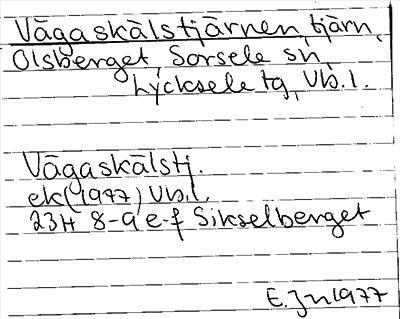 Vågaskålstjärnen, tjärn,
Olsberget, Sorsele sn,
Lycksele tg, Vb.l.
Vågaskålstj.
ek(1977) Vb.l.
23H 8-9 e-f Sikselberget
E. Jn 1977